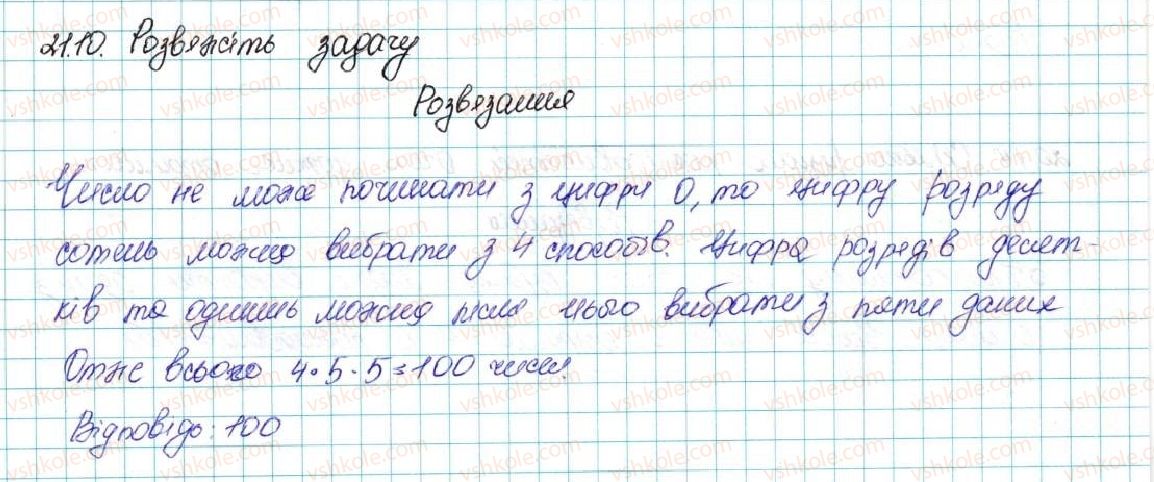 21.10. Розвяжіть задачу
Розвязання
Число не може починати з цифри 0, то цифру розряду
сотень можна вибрати з 4 способів. Цифра розрядів десят-
ків та одиниць можна після цього вибрати з пяти даних
Отже всього 4·5·5=100 чисел.
Відповідь: 100